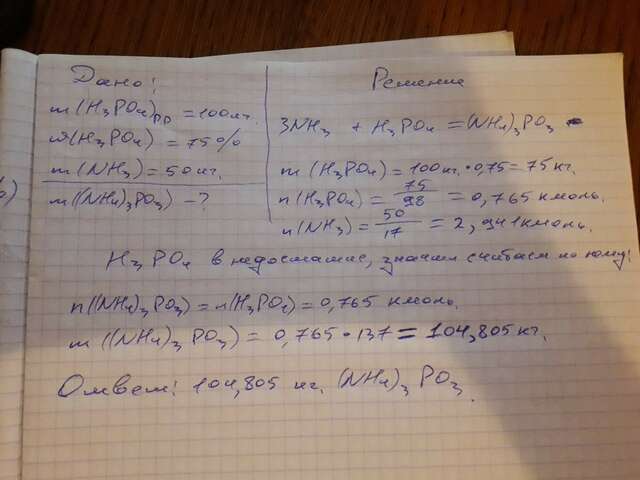 Дано:
m(H₃PO₄)рр = 100кг.
ω(H₃PO₄) = 75%
m(NH₃) = 50кг.
m((NH₄)₃PO₃) – ?
Решение
3NH₃ + H₃PO₄ = (NH₄)₃PO₃
m(H₃PO₄) = 100кг · 0,75 = 75кг.
n(H₃PO₄) = 75/98 = 0,765 кмоль.
n(NH₃) = 50/17 = 2,941кмоль.
H₃PO₄ в недостатке, значит считаем по нему:
n((NH₄)₃PO₃) = n(H₃PO₄) = 0,765 кмоль.
m((NH₄)₃PO₃) = 0,765 · 137 = 104,805 кг.
Ответ: 104,805 кг. (NH₄)₃PO₃.